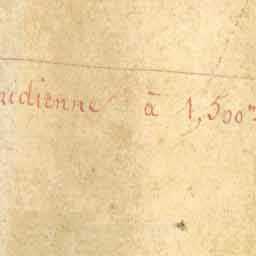 ridienne à 1,500m